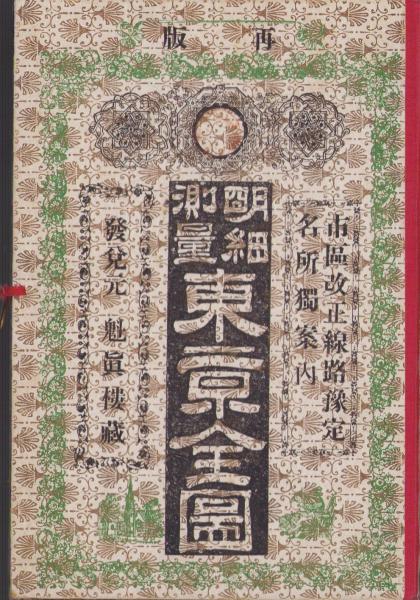 再版
市區改正線路豫定
名所獨案内
明細
測量
東京全圖
發兌元 魁眞樓藏